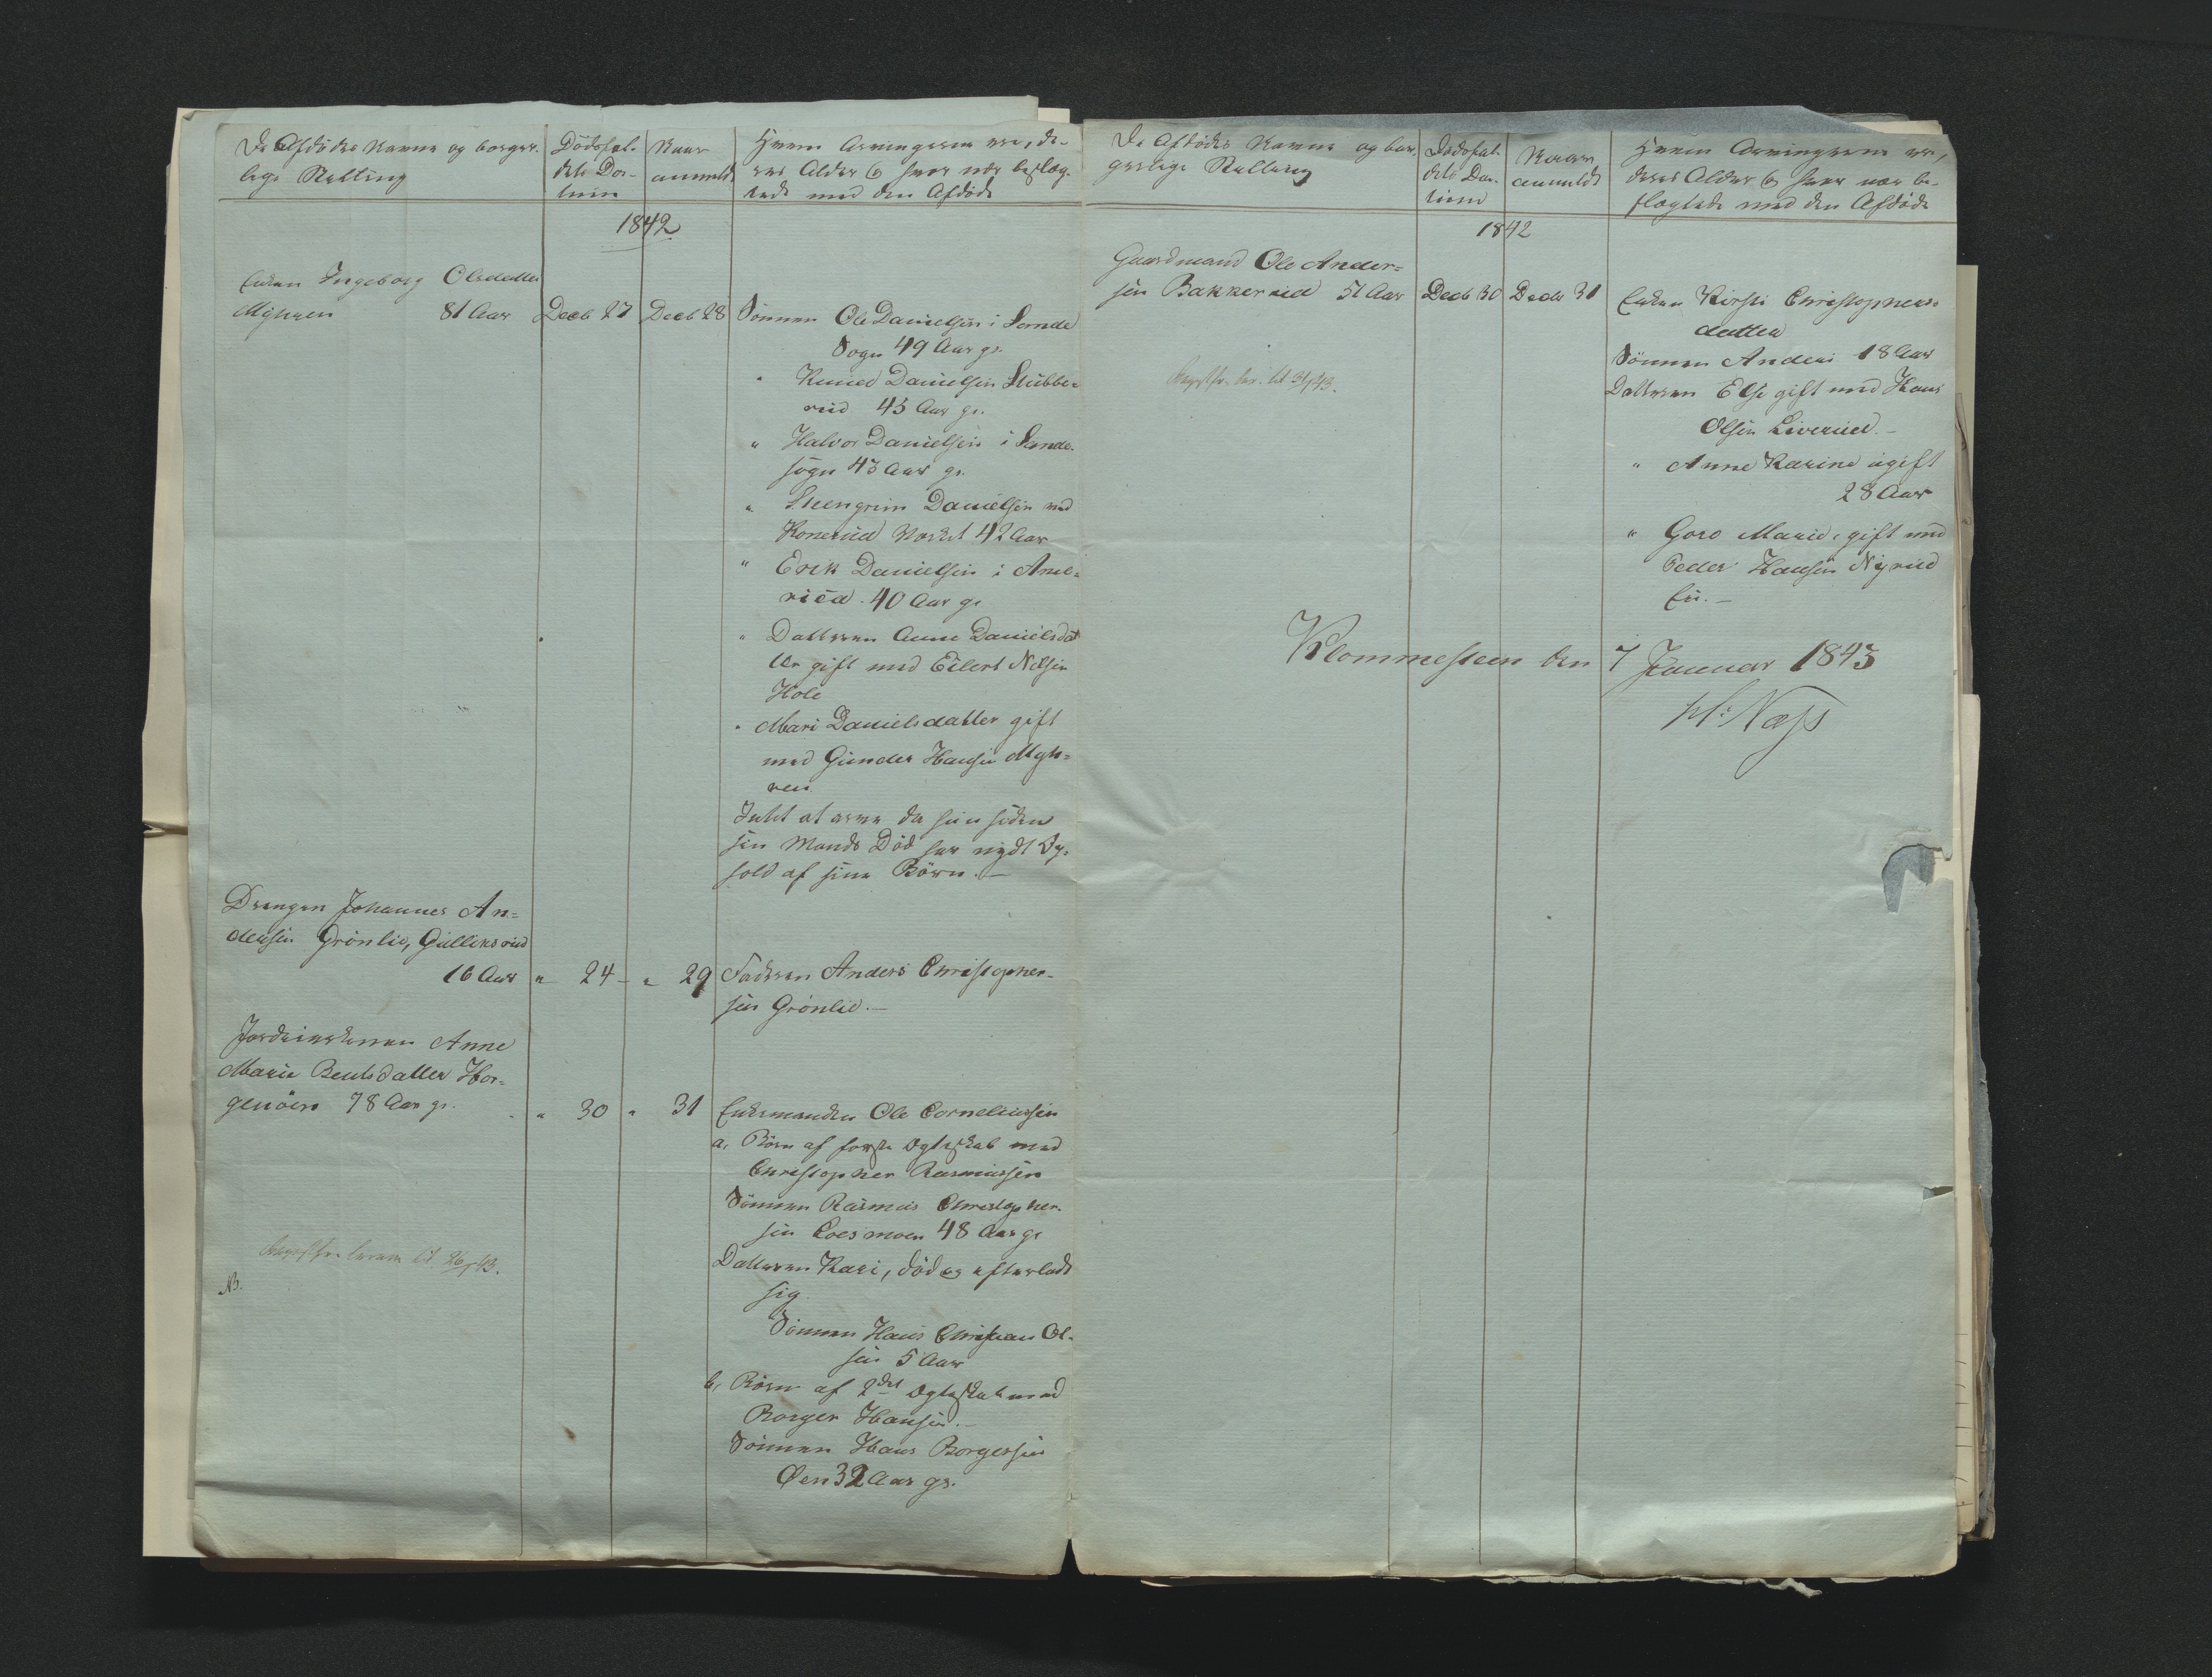 De Afdødes Navne og borger-
lige Stilling
Dødsfal-
dets Da-
tum
Naar
anmeldt
Hvem Arvingerne ere, de-
res Alder & hvor nær beslæg-
tede med den Afdøde
1842
Enken Ingeborg Olsdatter
Myhren 81 Aar
Decb 27
Decb 28
Sønnen Ole Danielsen i Sande
Sogn 49 Aar gl.
" Knud Danielsen Stubbe-
rud 45 Aar gl.
" Halvor Danielsen i Sande-
sogn 43 Aar gl.
" Steengrim Danielsen ved
Konerud Værket 42 Aar
" Erik Danielsen i Ame-
rica 40 Aar gl
" Datteren Anne Danielsdat
ter gift med Eilert Nilsen
Hole
" Mari Danielsdatter gift
med Gunder Hansen Myh-
ren
Intet at arve da hun siden
sin Mands Død har nydt Op-
hold af sine Børn. –
Drengen Johannes An-
dersen Grönlie, Gulliksrud
16 Aar
" 24 –
" 29
Faderen Anders Christopher-
sen Grönlie. –
Jordeierkonen Anne
Marie Bentsdatter Hor-
genöen 78 Aar gl.
" 30
" 31
Enkemanden Ole Corneliussen
a, Børn af første Ægteskab med
Christopher Rasmussen
Sønnen Rasmus Christopher-
sen Coesmoen 48 Aar gl
Datteren Kari, død og efterladt
sig
Sønnen Hans Christian Ol-
sen 5 Aar
b, Børn af 2det Ægteskab med
Borger Hansen. –
Sønnen Hans Borgersen
Øen 32 Aar gl.
til 26/43.
NB.
De Afdødes Navne og bor-
gerlige Stilling
Dødsfal-
dets Da-
tum
Naar
anmeldt
Hvem Arvingerne ere,
deres Alder & hvor nær be-
slægtede med den Afdøde
1842
Gaardmand Ole Ander-
sen Bakkerud 51 Aar
Decb 30
Decb 31
Enken Kirsti Christophers-
datter
Sønnen Anders 18 Aar
Datteren Else gift med Hans
Olsen Liverud. –
" Anne Karine ugift
28 Aar
" Goro Marie, gift med
Peder Hansen Nyrud
Ei. –
til 31/43.
Klommesteen den 7 Januar 1843
H: Næss